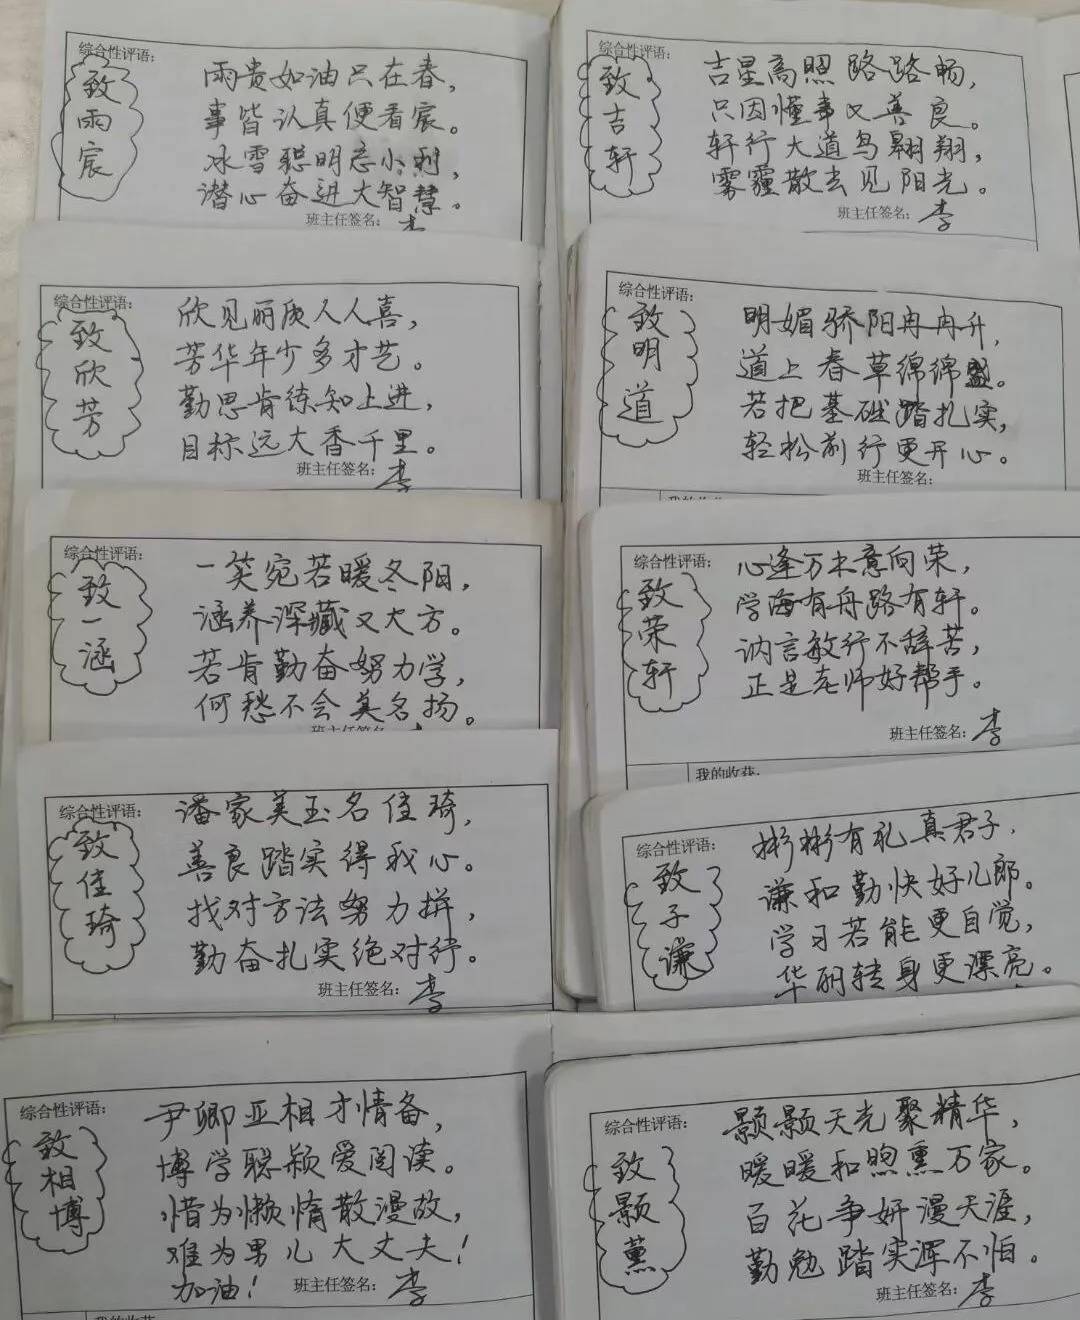 综合性评语:
致雨宸
雨贵如油只在春，
事皆认真便看宸。
冰雪聪明忌小利，
潜心奋进大智慧。
班主任签名:
综合性评语:
致吉轩
吉星高照路路畅，
只因懂事又善良。
轩行大道鸟翱翔，
雾霾散去见阳光。
班主任签名: 李
综合性评语:
致欣芳
欣见丽质人人喜，
芳华年少多才艺。
勤思肯练知上进，
目标远大香千里。
班主任签名: 李
综合性评语:
致明道
明媚骄阳冉冉升，
道上春草绵绵盛。
若把基础踏扎实，
轻松前行更开心。
班主任签名:
综合性评语:
致一涵
一笑宛若暖冬阳，
涵养深藏又大方。
若肯勤奋努力学，
何愁不会美名扬。
班主任签名
综合性评语:
致荣轩
心逢万木意向荣，
学海有舟路有轩。
讷言敏行不辞苦，
正是老师好帮手。
班主任签名: 李
我的收获:
综合性评语:
致佳琦
潘家美玉名佳琦，
善良踏实得我心。
找对方法努力拼，
勤奋扎实绝对行。
班主任签名: 李
综合性评语:
致子谦
彬彬有礼真君子，
谦和勤快好儿郎。
学习若能更自觉，
华丽转身更漂亮。
综合性评语:
致相博
尹卿亚相才情备，
博学聪颖爱阅读。
惜为懒惰散漫故，
难为男儿大丈夫！
加油！
班主任签名: 李
综合性评语:
致颢薰
颢颢天光聚精华，
暖暖和煦熏万家。
百花争妍漫天涯，
勤勉踏实浑不怕。
班主任签名: 李